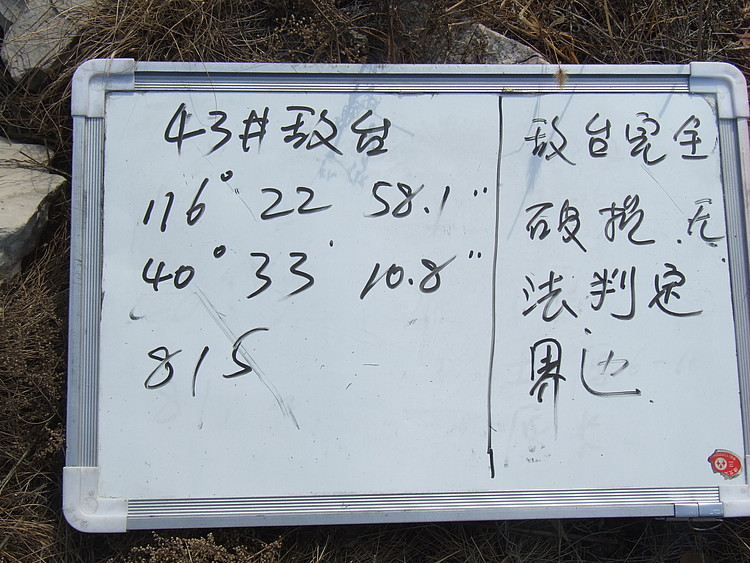 43#敌台
116° 22 58.1"
40° 33' 10.8"
815
敌台完全
破损.无
法判定
界边.